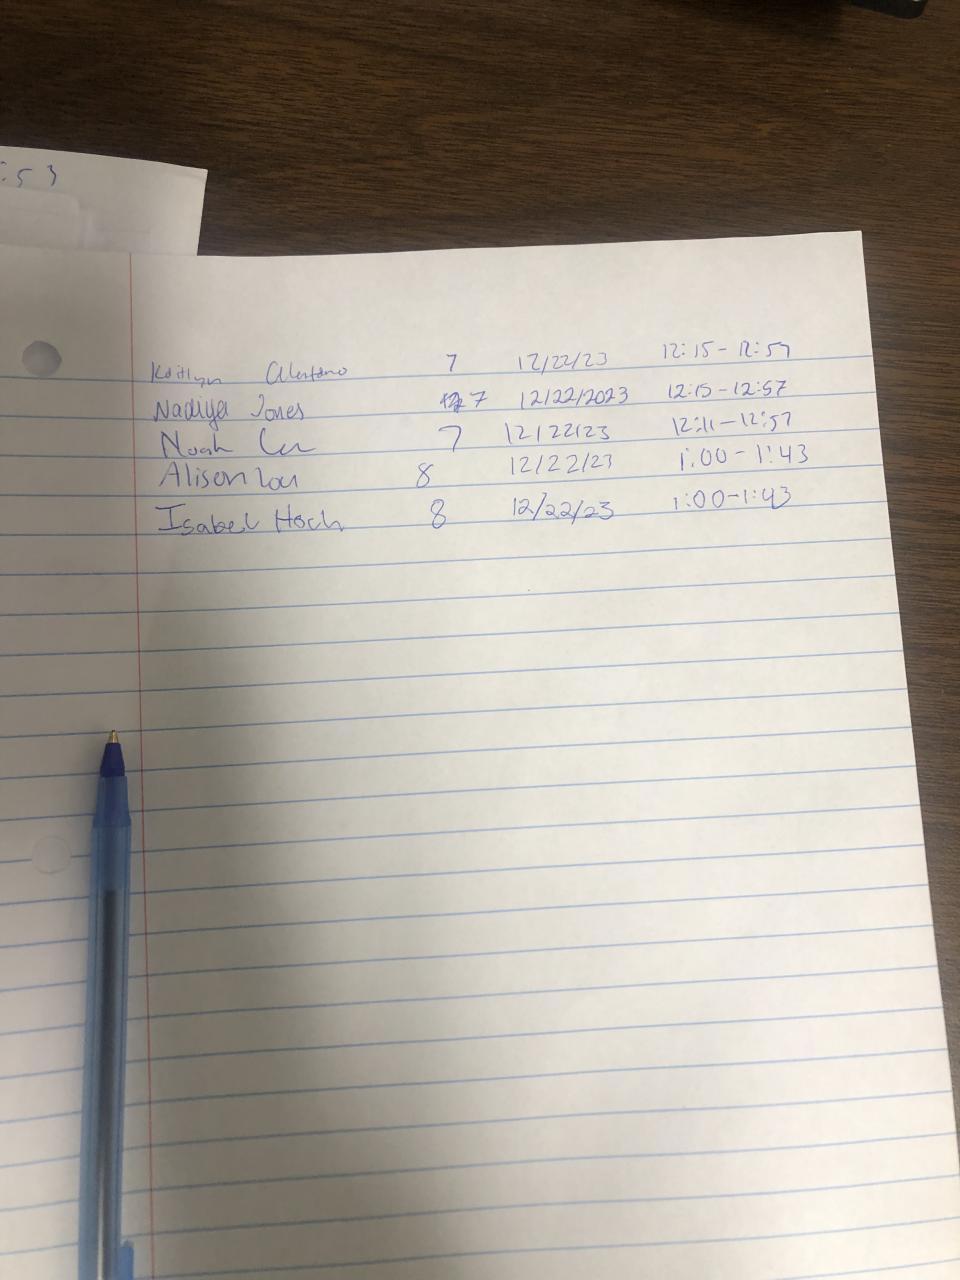 :53
Kaitlyn 7 12/22/23 12:15 - 12:57
Nadiya Jones 7 12/22/2023 12:15 - 12:57
Noah 7 12/22/23 12:11 - 12:57
Alison Lou 8 12/22/23 1:00 - 1:43
Isabel Hoch 8 12/22/23 1:00 - 1:43